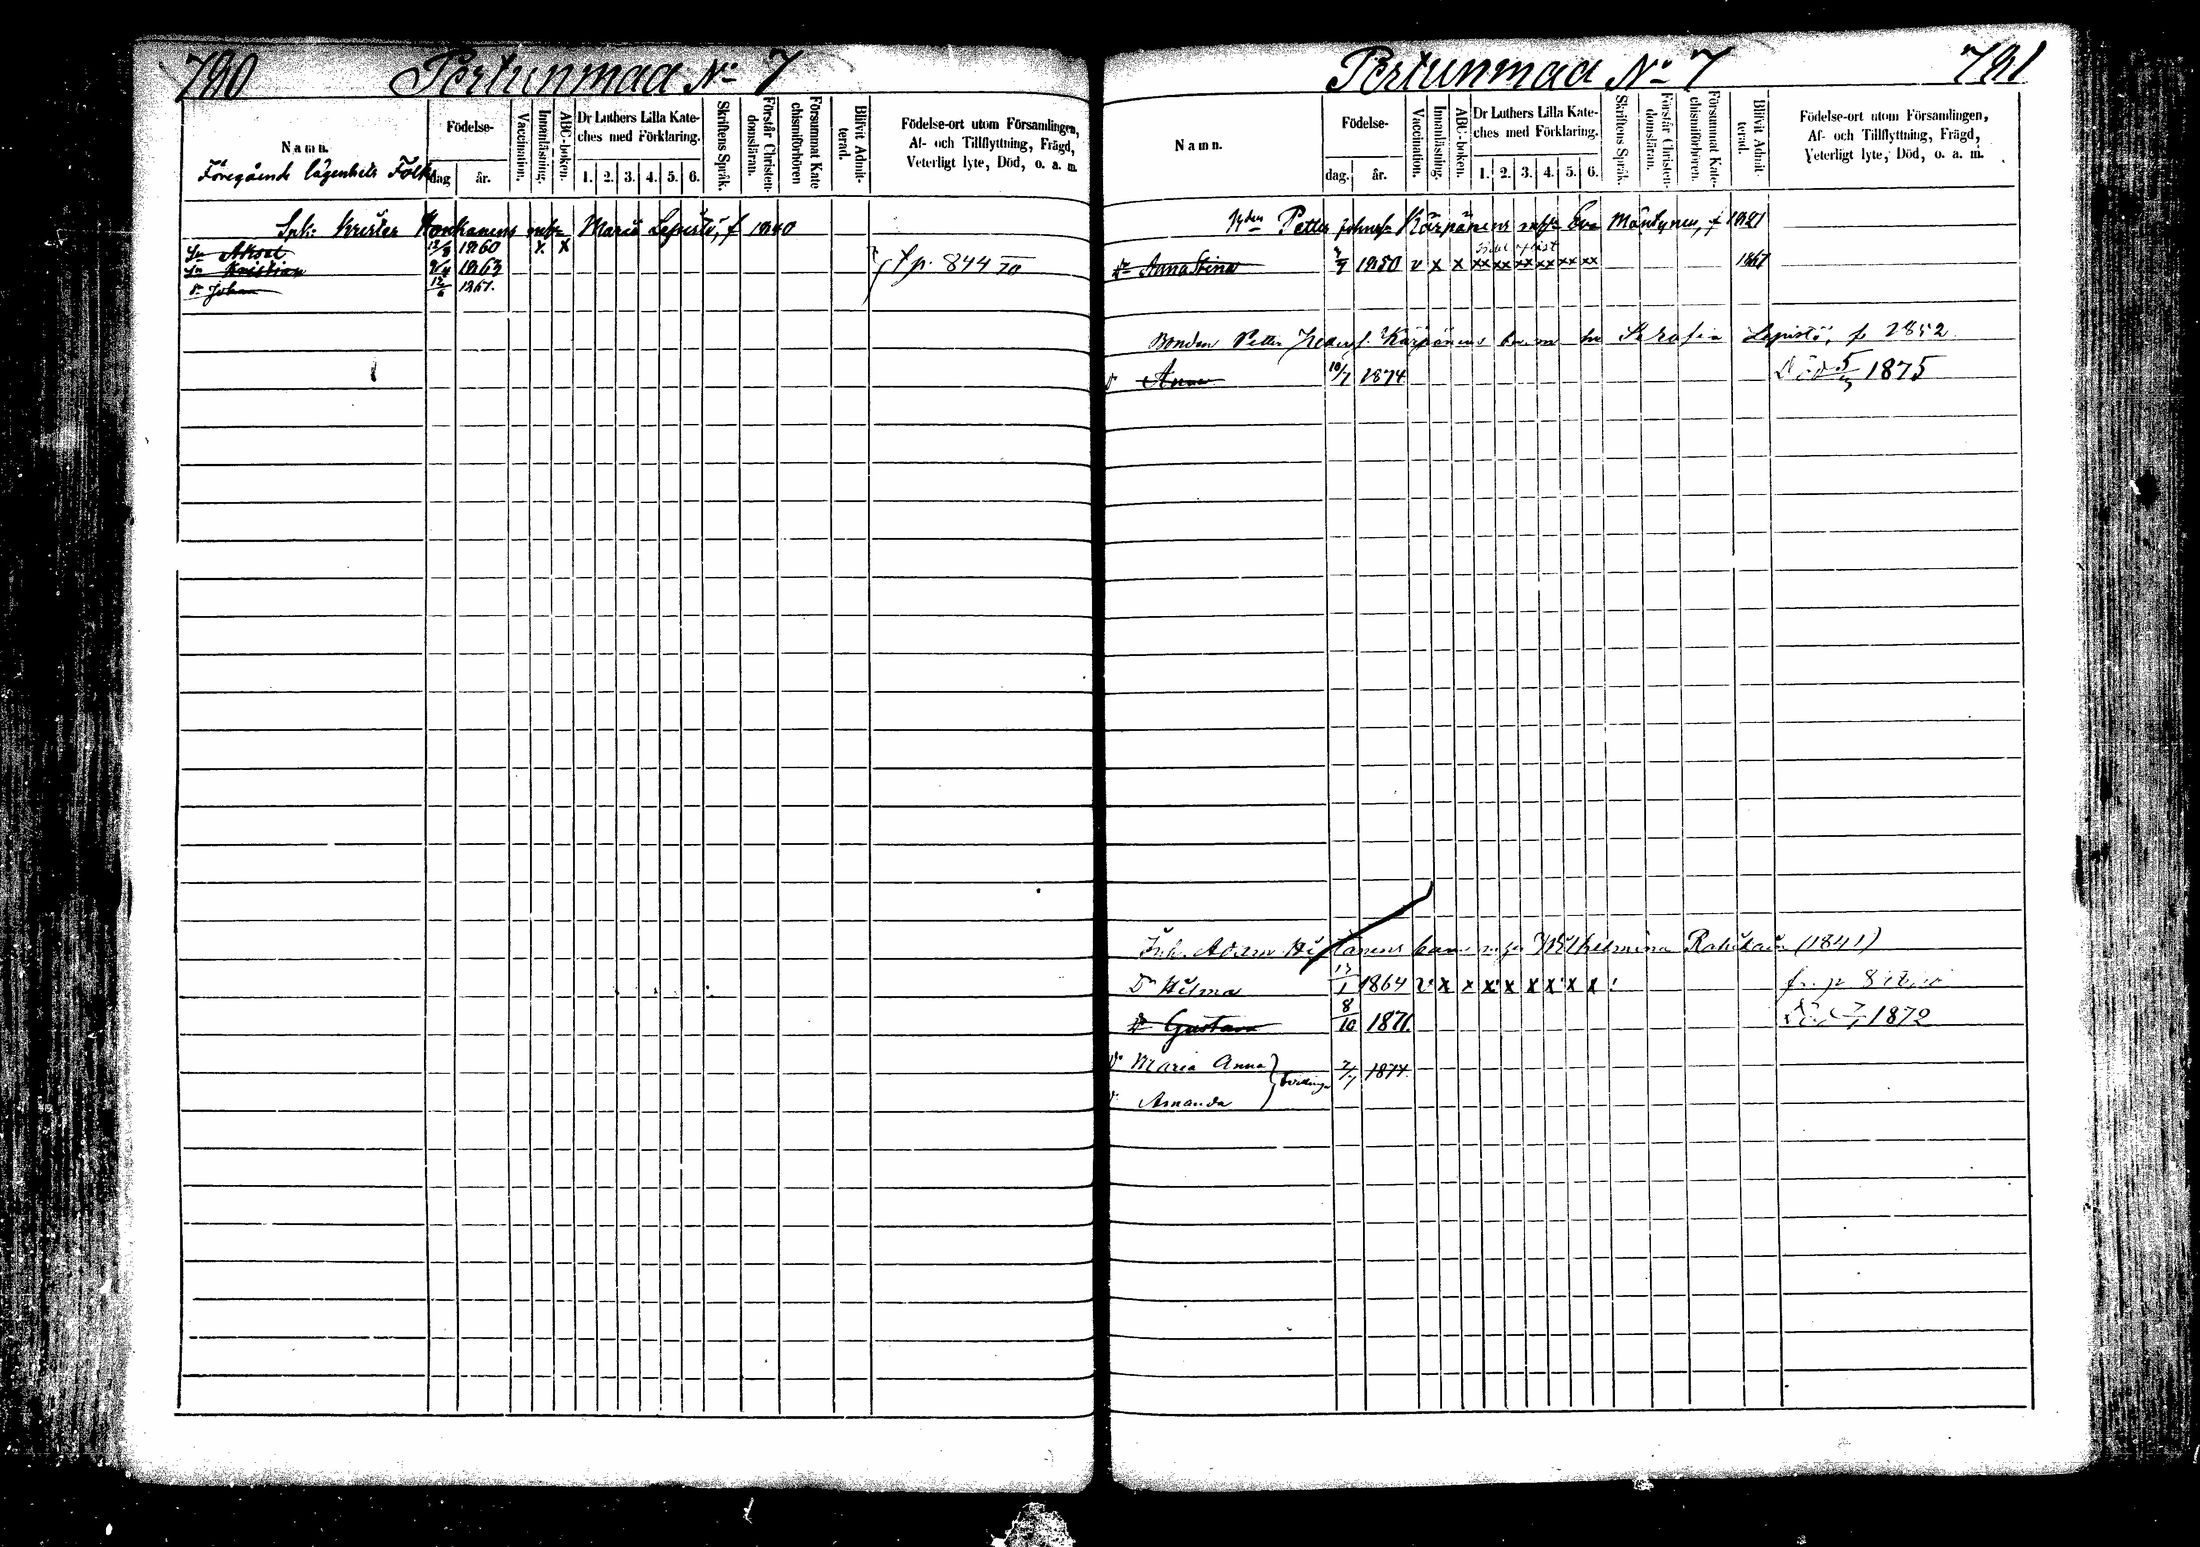 790 Pertunmaa No 7
Namn.
Föregående lägenhets Folk
Födelse-
dag
år.
Vaccination.
Innanläsning.
ABC-boken.
Dr Luthers Lilla Kate-
ches med Förklaring.
1. 2. 3. 4. 5. 6.
Skriftens Språk.
Förstår Christen-
domsläran.
Försummat Kate
chismiförhören
Blifvit Admit-
terad.
Födelse-ort utom Församlingen,
Af- och Tillflyttning, Frägd,
Veterligt lyte, Död, o. a. m.
Krister Honkanens Maria Lepistö, f 1840
Sn Aksel 12/8 1860 x x
Sn Kristian 1863 p. 844 70
Johan 12/6 1867.
Pertunmaa No 7 791
Namn.
Födelse-
dag.
år.
Vaccination.
Innanläsning.
ABC-boken.
Dr Luthers Lilla Kate-
ches med Förklaring.
1. 2. 3. 4. 5. 6.
Skriftens Språk.
Förstår Christen-
domsläran.
Försummat Kate-
chismiförhören.
Blifvit Admit-
terad.
Födelse-ort utom Församlingen,
Af- och Tillflyttning, Frägd,
Veterligt lyte, Död, o. a. m.
Petter Johnss Kärpänens Eva Mäntynen, f 1821
Dr Anna Stina 1850 v x x xx xx xx xx xx xx 1867
Bonden Petter Kärpänens barn Serafia Lepistö, f. 1852.
Dr Anna 10/7 1874 Död 5/5 1875
Inh. Adam barn Wilhelmina (1841)
Dr Hilma 17/1 1864 v x x x x x x x x
Dr Gustava 8/10 1871. 1872
Dr Maria Anna 2/7 1874.
Amanda